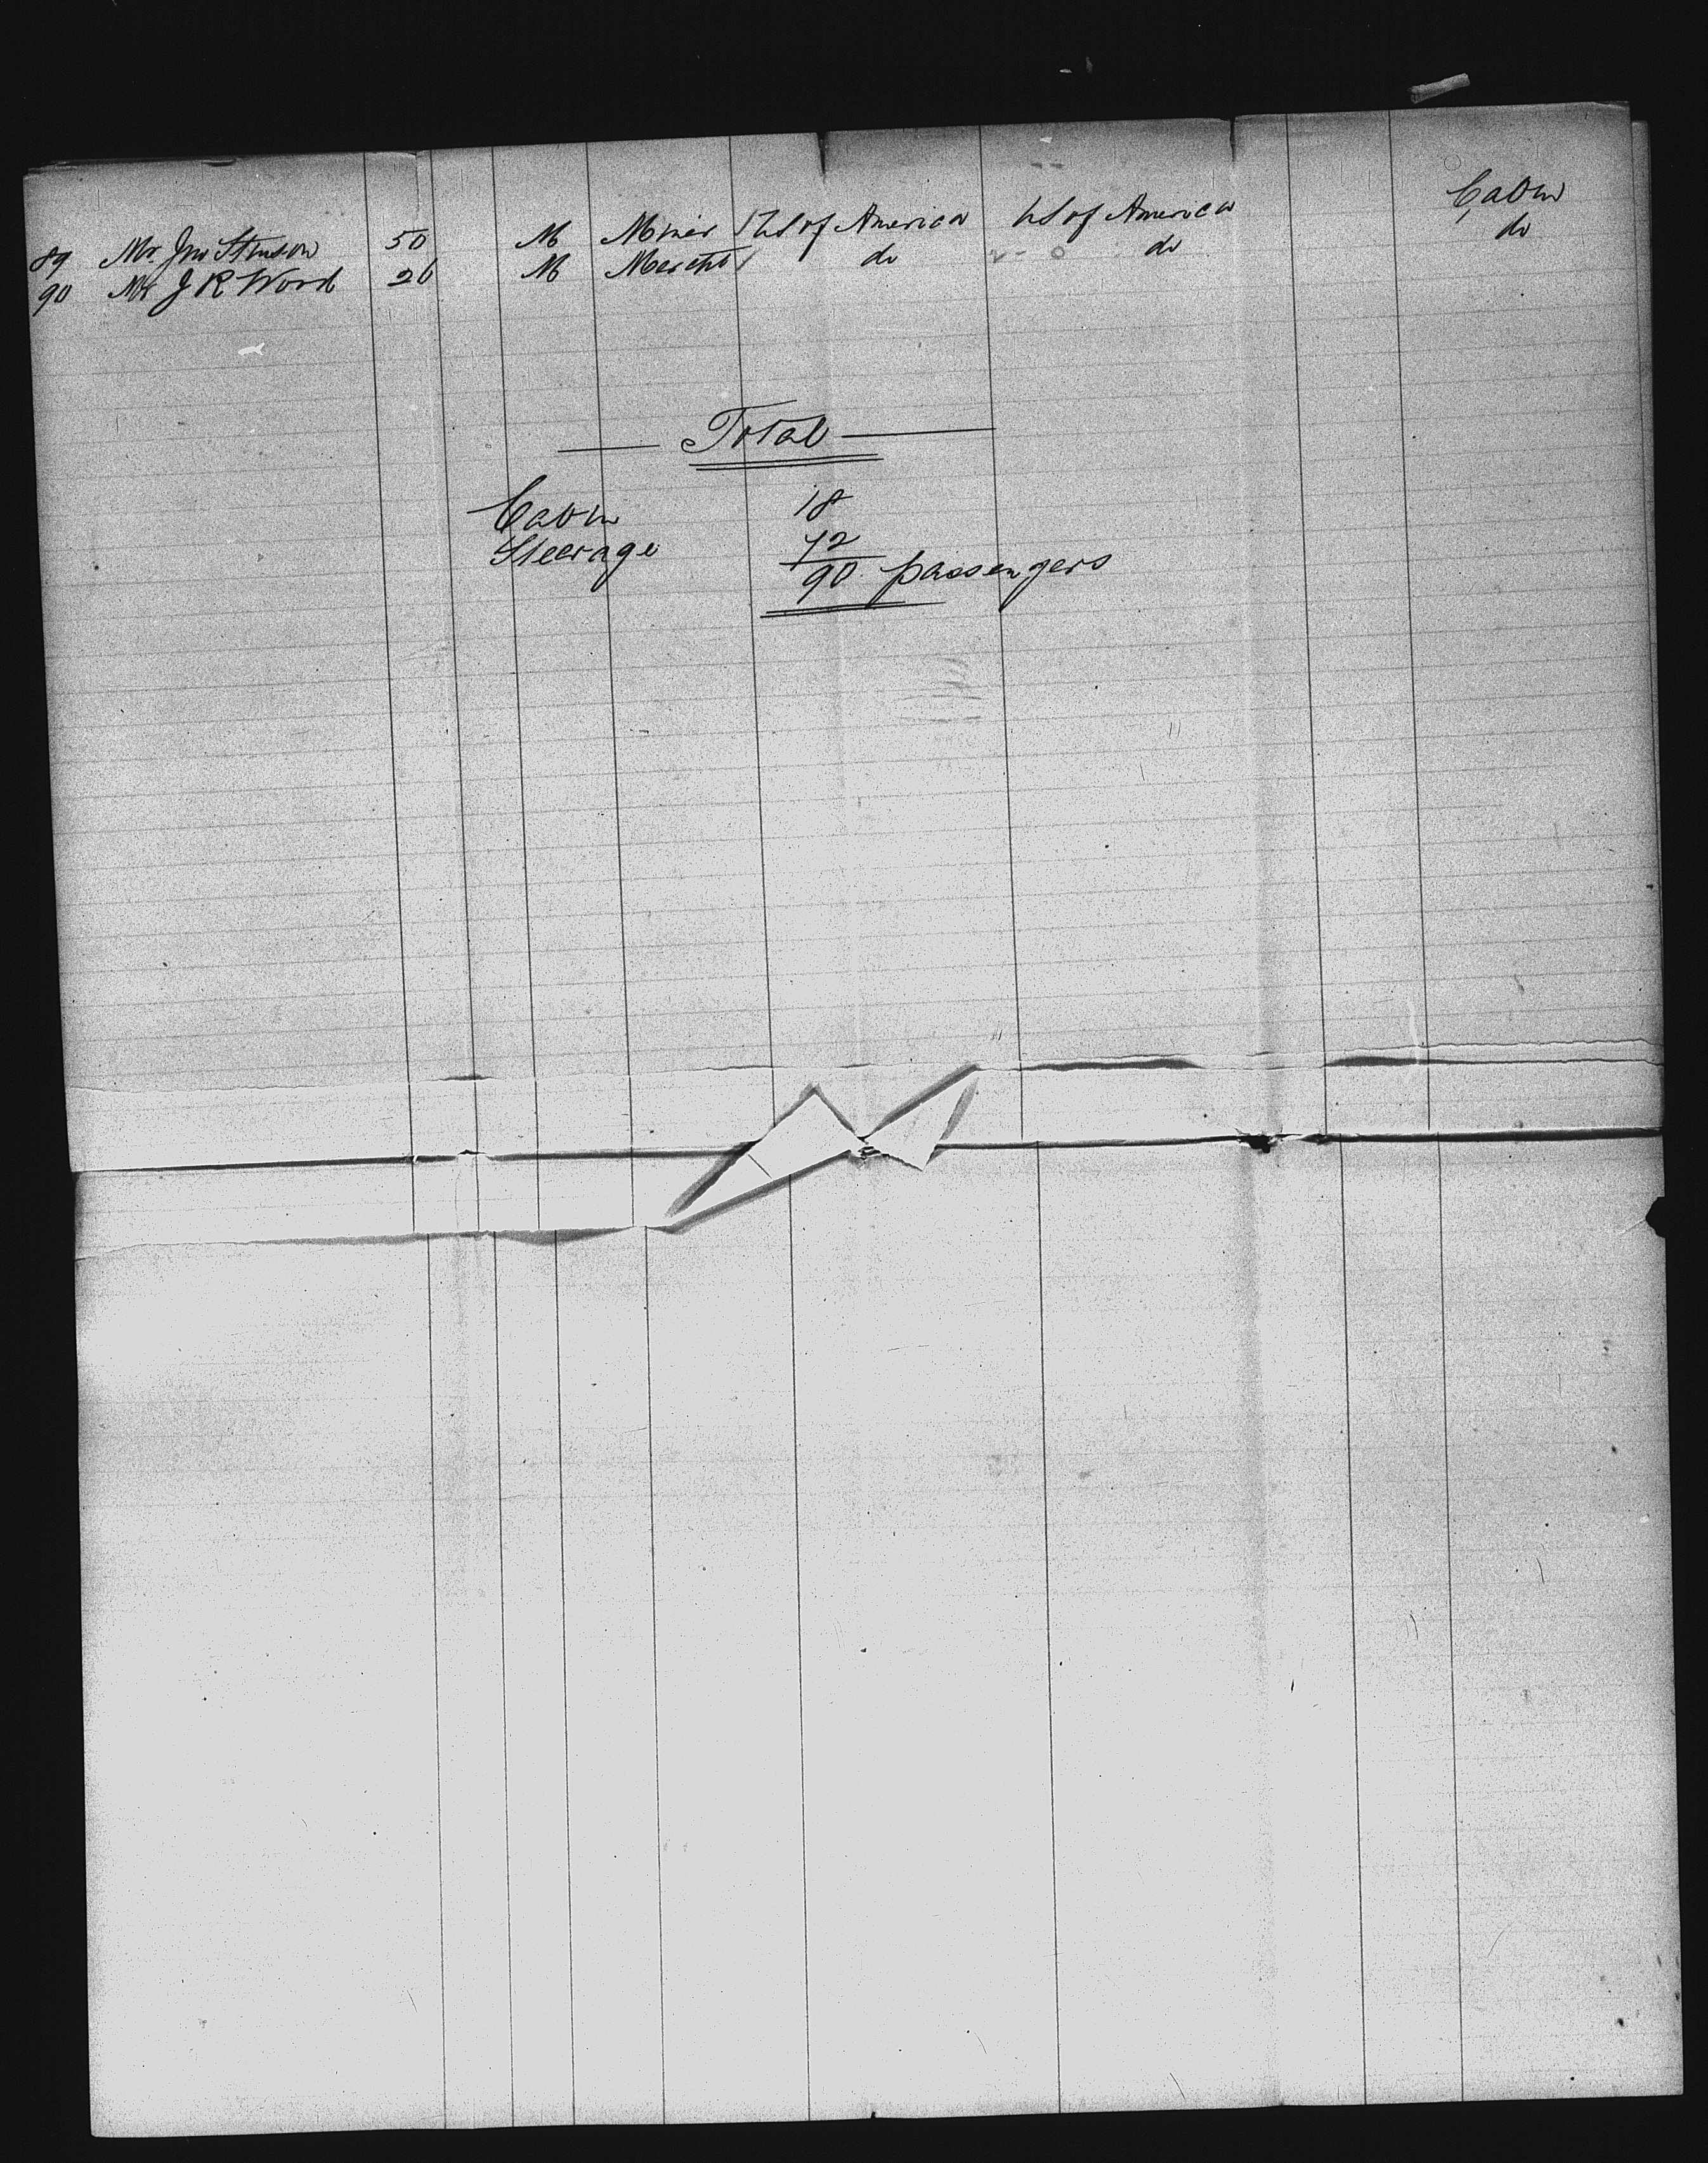 89 Mr. Jno Stinson 50 M Miner US of America US of America Cabin
90 Mr J R Wood 26 M Mercht do do do
Total
Cabin 18
Steerage 72
90 passengers